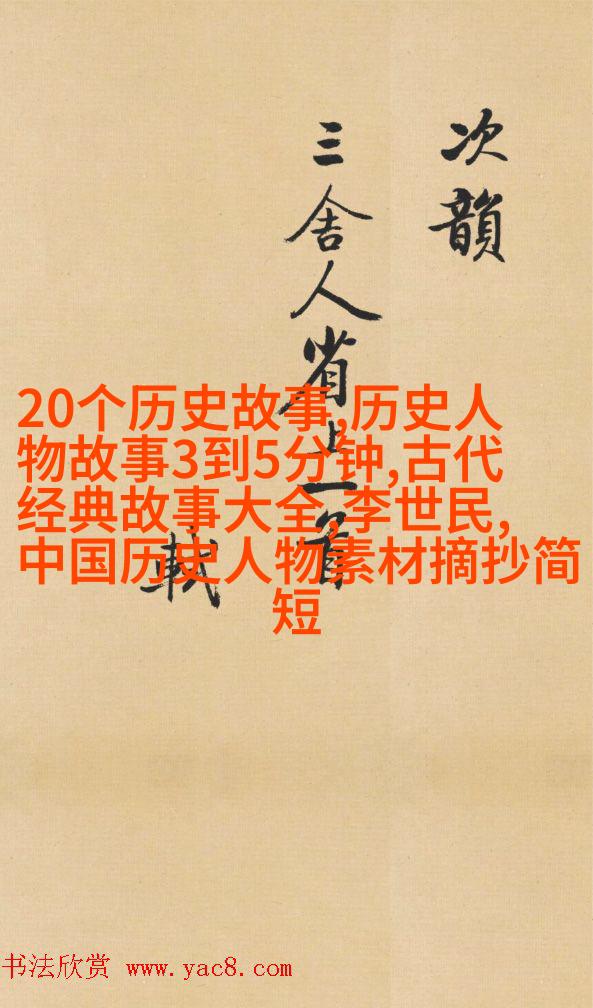 次韻
三舍人省上一首
載
20个历史故事,历史人
物故事3到5分钟,古代
经典故事大全,李世民,
中国历史人物素材摘抄简
短
书法欣赏 www.yac8.com